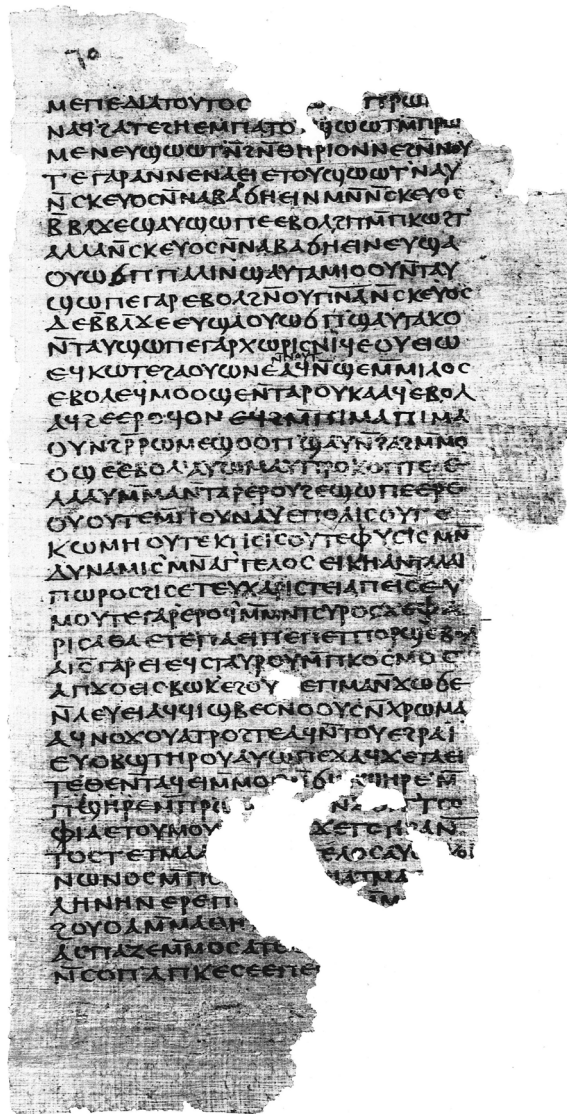 70
ⲙⲉⲡⲉⲇⲓⲁⲧⲟⲩⲧⲟⲥ ⲡⲣⲱ
ⲛⲁϥϩⲁⲧⲉϩⲏⲉⲙⲡⲁⲧⲟ ϣⲱⲱⲧⲙⲡⲣⲱ
ⲙⲉⲛⲉⲩϣⲱⲱⲧⲛ̄ϩⲛ̄ⲑⲏⲣⲓⲟⲛⲛⲉϩⲛ̄ⲛⲟⲩ
ⲧⲉⲅⲁⲣⲁⲛⲛⲉⲛⲁⲉⲓⲉⲧⲟⲩϣⲱⲱⲧ`ⲛⲁⲩ
ⲛ̄ⲥⲕⲉⲩⲟⲥⲛ̄ⲛⲁⲃⲁϭⲏⲉⲓⲛⲙⲛ̄ⲛ̄ⲥⲕⲉⲩⲟⲥ
ⲃ̄ⲃⲗϫⲉϣⲁⲩϣⲱⲡⲉⲉⲃⲟⲗϩⲓⲧⲙ̄ⲡⲕⲱϩⲧ`
ⲁⲗⲗⲁⲛ̄ⲥⲕⲉⲩⲟⲥⲛ̄ⲛⲁⲃⲁϭⲏⲉⲓⲛⲉⲩϣⲁ
ⲟⲩⲱϭⲡ`ⲡⲁⲗⲓⲛϣⲁⲩⲧⲁⲙⲓⲟⲟⲩⲛ̄ⲧⲁⲩ
ϣⲱⲡⲉⲅⲁⲣⲉⲃⲟⲗϩⲛ̄ⲟⲩⲡⲛ̄ⲁ̄ⲛ̄ⲥⲕⲉⲩⲟⲥ
ⲇⲉⲃ̄ⲃⲗ̄ϫⲉⲉⲩϣⲁⲟⲩⲱϭⲡ`ϣⲁⲩⲧⲁⲕⲟ
ⲛ̄ⲧⲁⲩϣⲱⲡⲉⲅⲁⲣⲭⲱⲣⲓⲥⲛⲓϥⲉⲟⲩⲉⲓⲱ
ⲉϥⲕⲱⲧⲉϩⲁⲟⲩⲱⲛⲉⲁϥⲛ̄ϣⲉⲙ̄ⲙⲓⲗⲟⲥ
ⲉⲃⲟⲗⲉϥⲙⲟⲟϣⲉⲛ̄ⲧⲁⲣⲟⲩⲕⲁⲁϥⲉⲃⲟⲗ
ⲁϥϩⲉⲉⲣⲟϥⲟⲛⲉϥϩⲙ̄ⲡⲓⲙⲁⲡⲓⲙⲁ
ⲟⲩⲛϩⲣ̄ⲣⲱⲙⲉϣⲟⲟⲡ`ϣⲁⲩⲣ̄ϩⲁϩⲙ̄ⲙⲟ
ⲟϣⲉⲉⲃⲟⲗ`ⲁⲩⲱⲙⲁⲩⲡⲣⲟⲕⲟⲡⲧⲉⲉ
ⲗⲁⲁⲩⲙ̄ⲙⲁⲛ̄ⲧⲁⲣⲉⲣⲟⲩϩⲉϣⲱⲡⲉⲉⲣⲟ
ⲟⲩⲟⲩⲧⲉⲙ̄ⲡⲟⲩⲛⲁⲩⲉⲡⲟⲗⲓⲥⲟⲩⲧⲉ
ⲕⲱⲙⲏⲟⲩⲧⲉⲕⲧⲓⲥⲓⲥⲟⲩⲧⲉⲫⲩⲥⲓⲥⲙⲛ̄
ⲇⲩⲛⲁⲙⲓⲥ`ⲙⲛ̄ⲁⲅⲅⲉⲗⲟⲥⲉⲓⲕⲏⲁⲛⲧⲁⲗⲁⲓ
ⲡⲱⲣⲟⲥϩⲓⲥⲉⲧⲉⲩⲭⲁⲣⲓⲥⲧⲉⲓⲁⲡⲉⲓ̄ⲥ̄ⲉⲩ
ⲙⲟⲩⲧⲉⲅⲁⲣⲉⲣⲟϥ`ⲙⲙⲛ̄ⲧⲥⲩⲣⲟⲥϫⲉⲫⲁ
ⲣⲓⲥⲁⲑⲁⲉⲧⲉⲡⲁⲉⲓⲡⲉⲡⲉⲧⲡⲟⲣϣⲉⲃⲟⲗ
ⲁⲓ̄ⲥ̄ⲅⲁⲣⲉⲓⲉϥⲥⲧⲁⲩⲣⲟⲩⲙ̄ⲡⲕⲟⲥⲙⲟⲥ
ⲁⲡϫⲟⲉⲓⲥⲃⲱⲕⲉϩⲟⲩ ⲉⲡⲙⲁⲛ̄ϫⲱϭⲉ
ⲛ̄ⲗⲉⲩⲉⲓⲁϥϥⲓϣⲃⲉⲥⲛⲟⲟⲩⲥⲛ̄ⲭⲣⲱⲙⲁ
ⲁϥⲛⲟϫⲟⲩⲁⲧⲣⲟϩⲧⲉⲁϥⲛ̄ⲧⲟⲩⲉϩⲣⲁⲓ
ⲉⲩⲟⲃϣⲧⲏⲣⲟⲩⲁⲩⲱⲡⲉϫⲁϥϫⲉⲧⲁⲉⲓ
ⲧⲉⲑⲉⲛ̄ⲧⲁϥⲉⲓⲙⲙⲟⲥ ϣⲏⲣⲉⲙ̄
ⲡϣⲏⲣⲉⲙ̄ⲡⲣⲱ ⲧⲥⲟ
ⲫⲓⲁⲉⲧⲟⲩⲙⲟⲩ ϫⲉⲧⲥⲧⲓⲣⲁⲛ
ⲧⲟⲥⲧⲉⲧⲙⲁⲁ ⲉⲗⲟⲥⲁⲩ
ⲛⲱⲛⲟⲥⲙ̄ⲡⲥ ⲙⲁ
ⲇⲏⲛⲏⲛⲉⲣⲉⲡ
ϩⲟⲩⲟⲁⲙ̄ⲙⲁⲑⲏ
ⲁⲥⲡⲁⲍⲉⲙ̄ⲙⲟⲥⲁⲧⲉ
ⲛ̄ⲥⲟⲡ`ⲁⲡⲕⲉⲥⲉⲉⲡⲉ